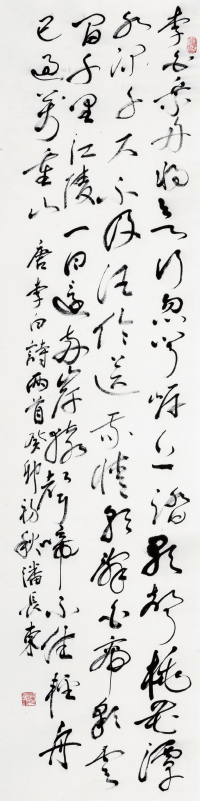 李白乘舟將欲行忽聞岸上踏歌聲桃花潭
水深千尺不及汪倫送我情朝辭白帝彩雲
間千里江陵一日還兩岸猿聲啼不住輕舟
已過萬重山
唐李白詩兩首癸卯初秋潘長東